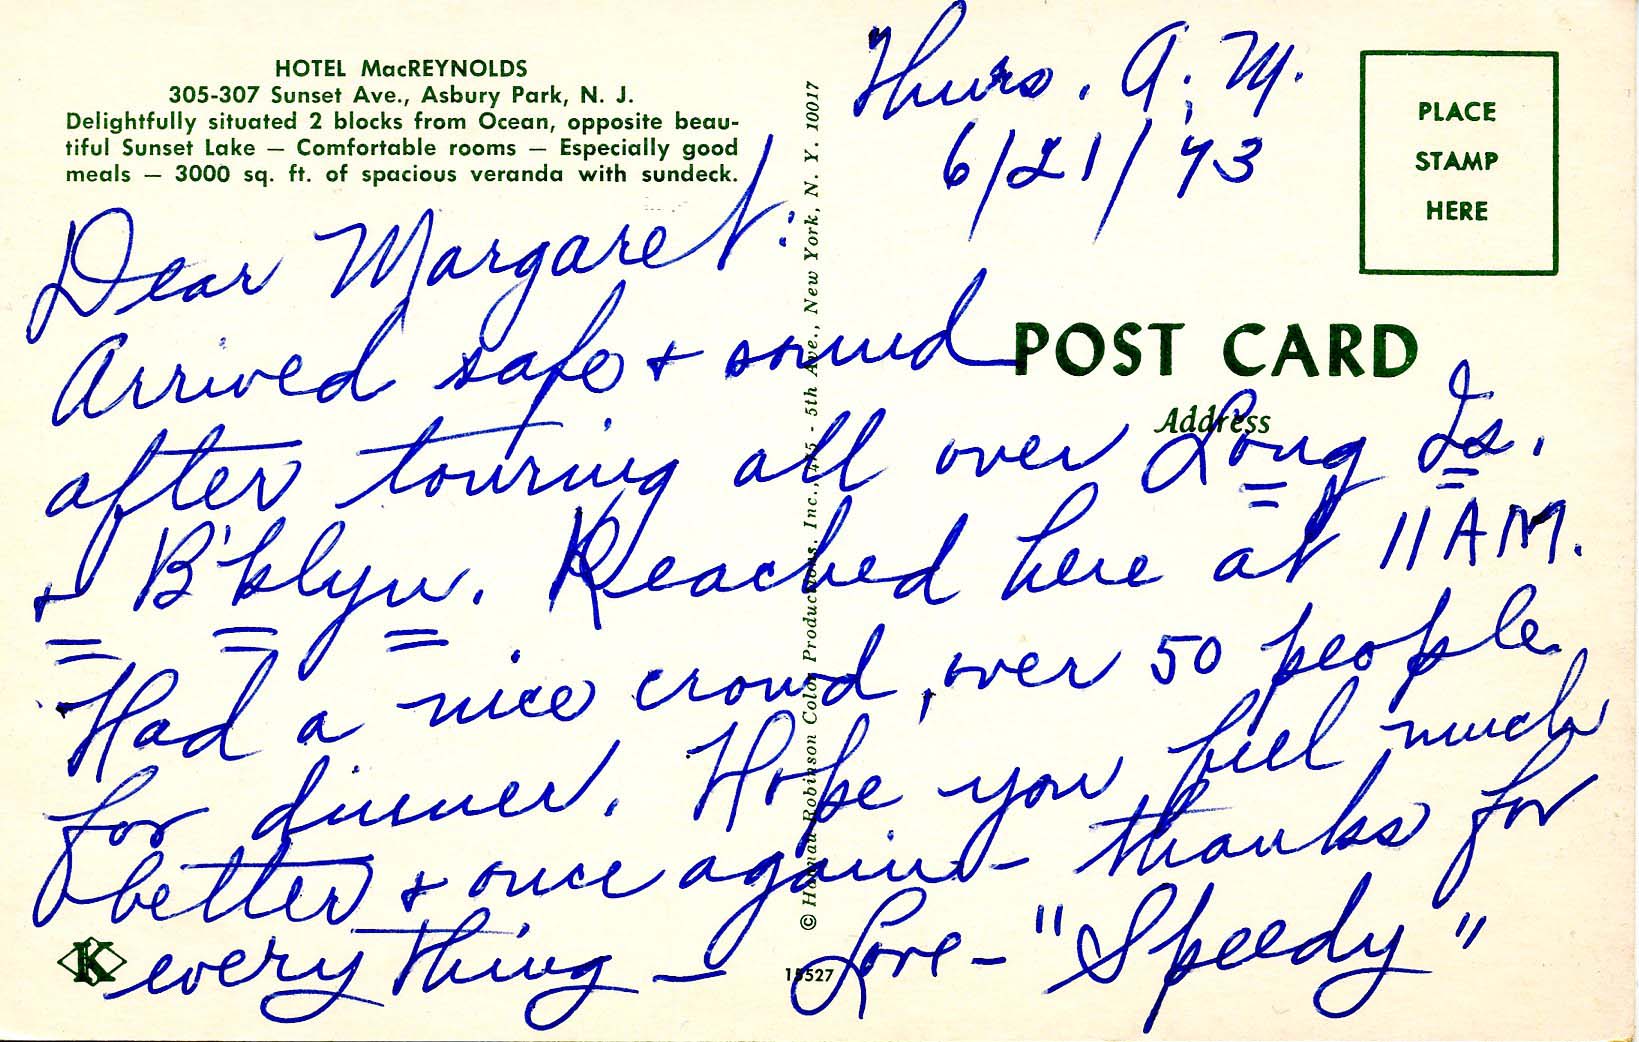 HOTEL MacREYNOLDS
305-307 Sunset Ave., Asbury Park, N. J.
Delightfully situated 2 blocks from Ocean, opposite beau-
tiful Sunset Lake — Comfortable rooms — Especially good
meals — 3000 sq. ft. of spacious veranda with sundeck.
Thurs. A.M.
6/21/73
PLACE
STAMP
HERE
Dear Margaret:
Arrived safe + sound
after touring all over Long Is.
+ B'klyn. Reached here at 11 AM.
Had a nice crowd, over 50 people
for dinner. Hope you feel much
better + once again - thanks for
everything — Love - "Speedy"
POST CARD
Address
© Hannau Robinson Color Productions, Inc., 475 - 5th Ave., New York, N. Y. 10017
K
15527